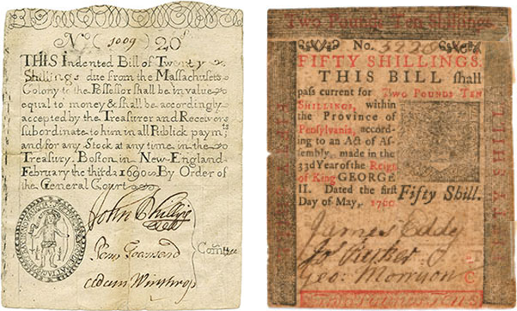 No (3009) 20s
THIS Indented Bill of Twenty
Shillings due from the Massachusets
Colony to the Possessor shall be in value
equal to money & shall be accordingly
accepted by the Treasurer and Receivers
subordinate to him in all Publick paymts
and for any Stock at any time in the
Treasury. Boston in New-England
February the third 1690. By Order of
the General Court
John Phillips
Penn Townsend
Adam Winthrop
Comttee
Two Pounds Ten Shillings
No. 5220
FIFTY SHILLINGS.
THIS BILL shall
pass current for Two Pounds Ten
Shillings, within
the Province of
Pensylvania, accord-
ing to an Act of As-
sembly, made in the
33d Year of the Reign
of King GEORGE
II. Dated the first
Day of May, 1760
Fifty Shill.
James Eddy
Geo: Morrison